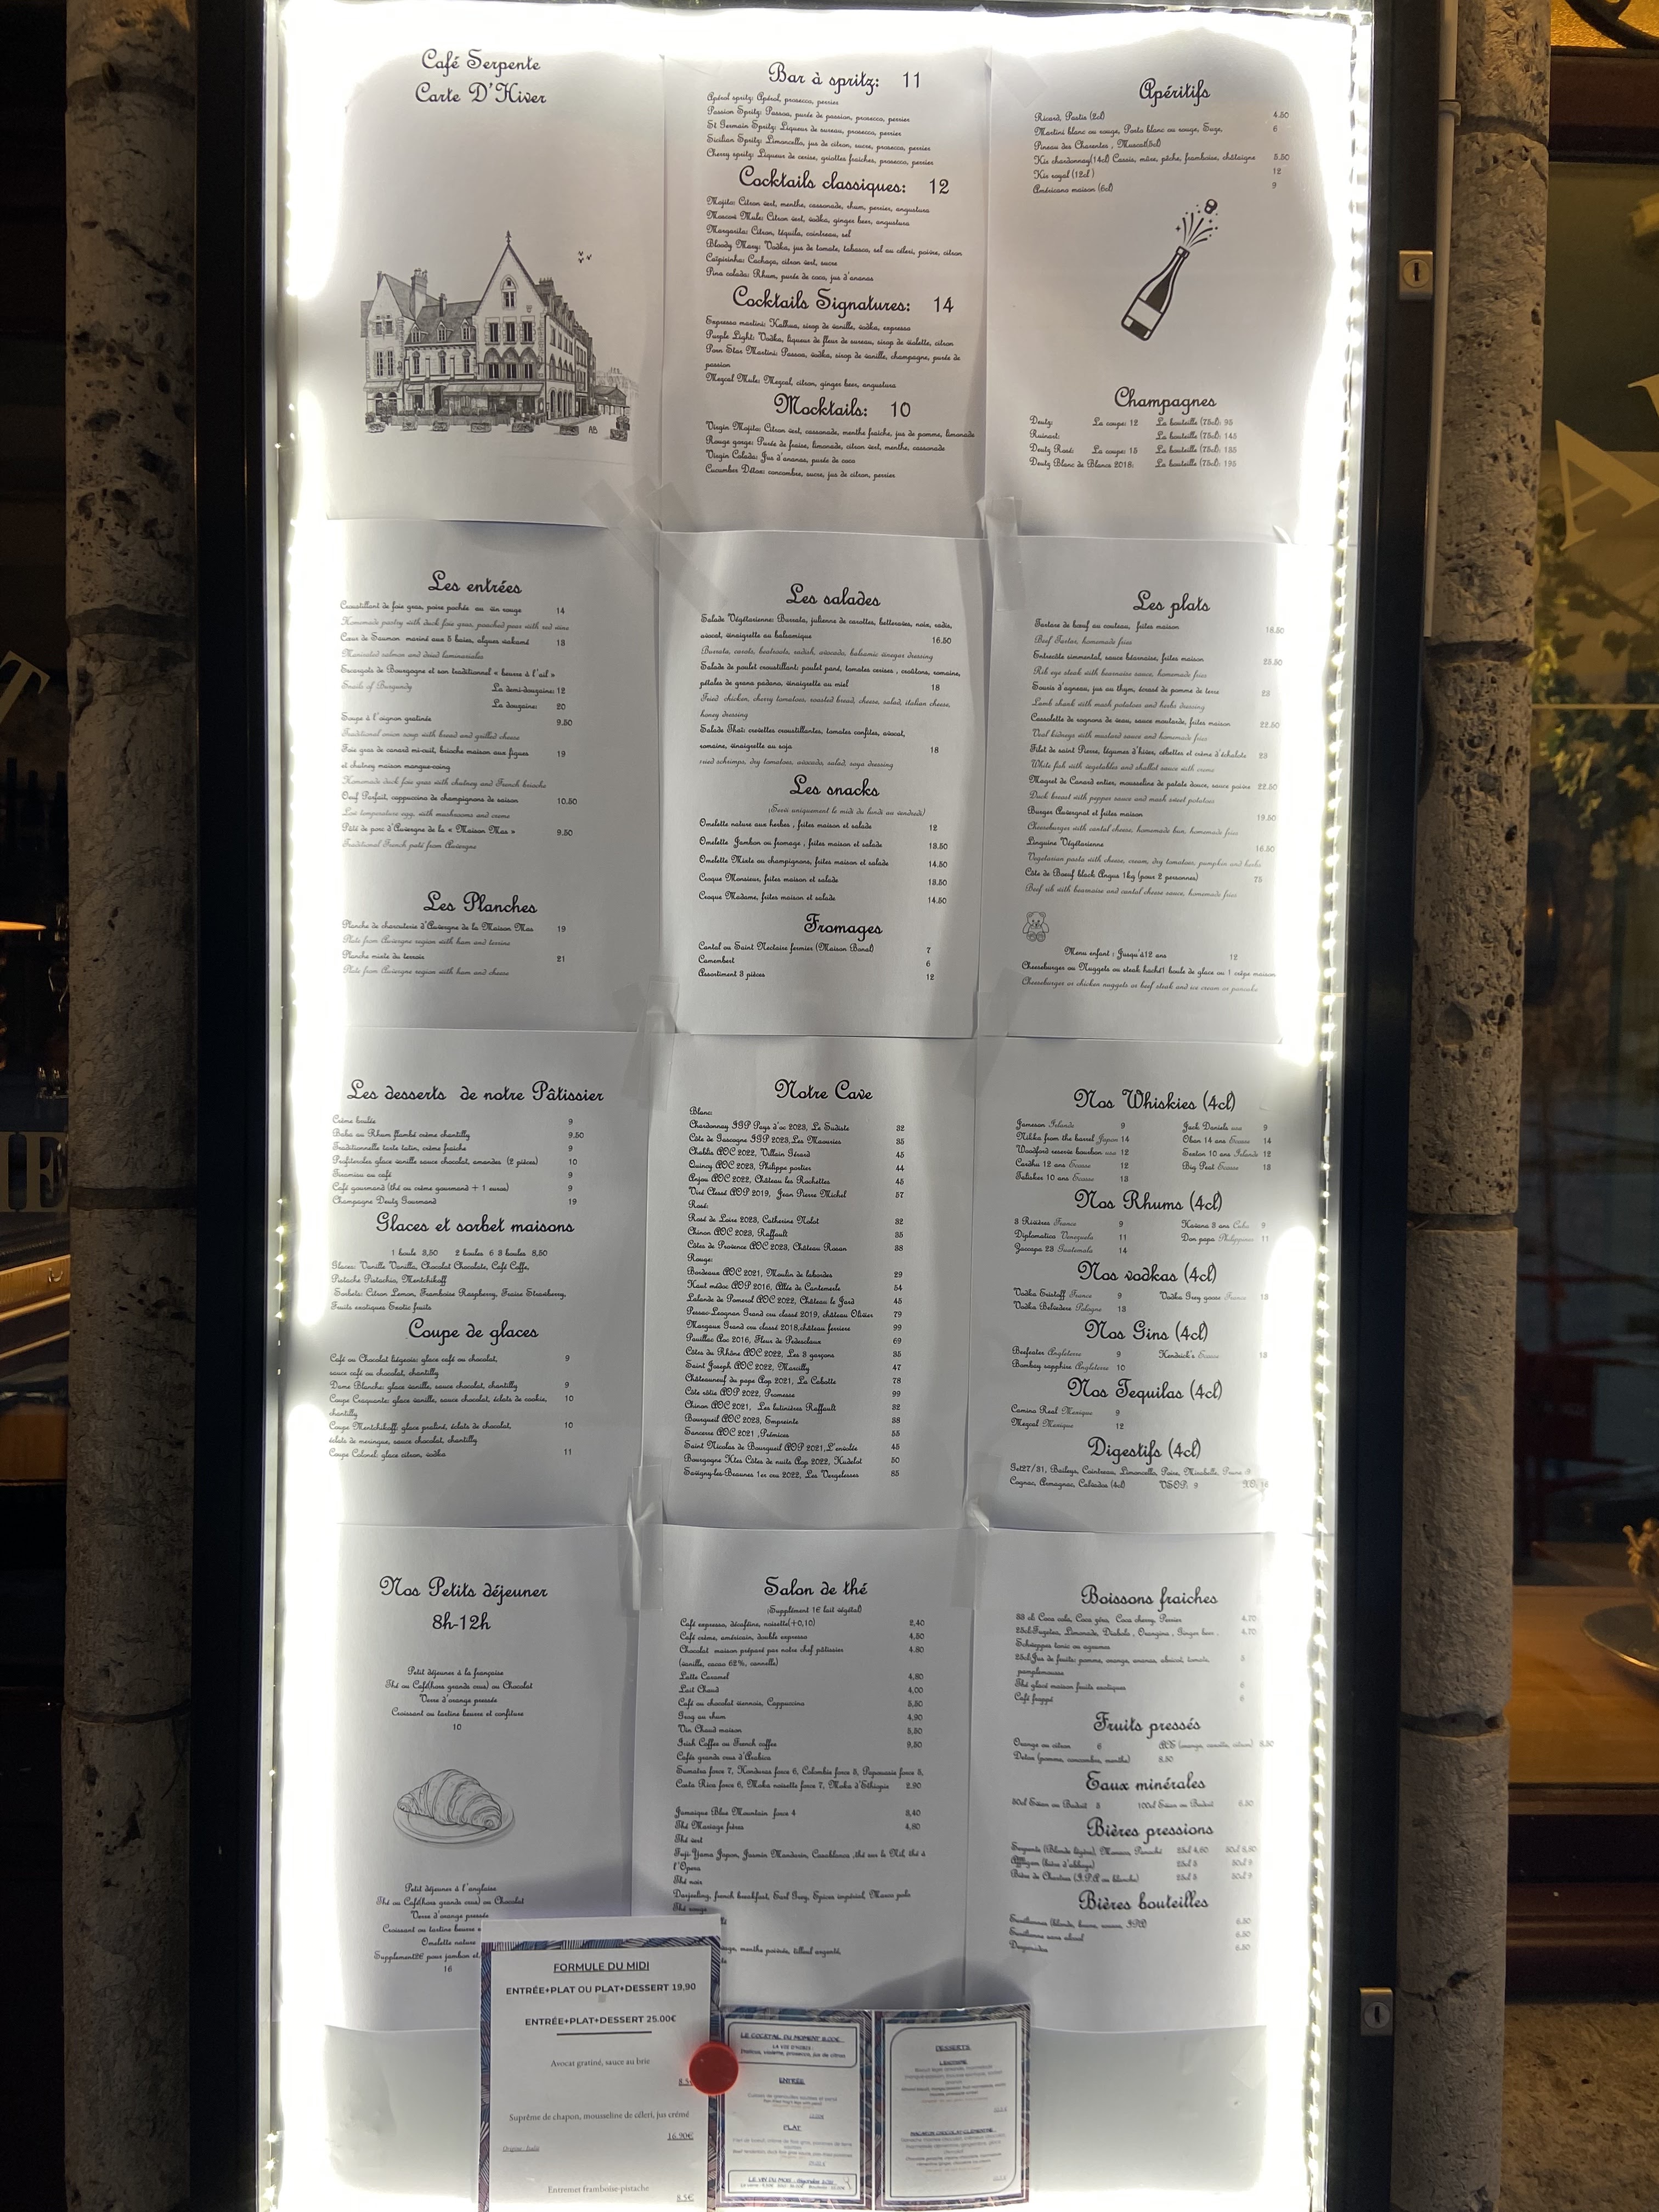 Café Serpente
Carte D'Hiver
Bar à spritz: 11
Apérol spritz: Apérol, prosecco, perrier
Passion Spritz: Passoa, purée de passion, prosecco, perrier
St Germain Spritz: Liqueur de sureau, prosecco, perrier
Sicilian Spritz: Limoncello, jus de citron, sucre, prosecco, perrier
Cherry spritz: Liqueur de cerise, griottes fraiches, prosecco, perrier
Cocktails classiques: 12
Mojito: Citron vert, menthe, cassonade, rhum, perrier, angustura
Moscow Mule: Citron vert, vodka, ginger beer, angustura
Margarita: Citron, téquila, cointreau, sel
Bloody Mary: Vodka, jus de tomate, tabasco, sel au céleri, poivre, citron
Caïpirinha: Cachaça, citron vert, sucre
Pina colada: Rhum, purée de coco, jus d'ananas
Cocktails Signatures: 14
Expresso martini: Kalhua, sirop de vanille, vodka, expresso
Purple Light: Vodka, liqueur de fleur de sureau, sirop de violette, citron
Porn Star Martini: Passoa, vodka, sirop de vanille, champagne, purée de
passion
Mezcal Mule: Mezcal, citron, ginger beer, angustura
Mocktails: 10
Virgin Mojito: Citron vert, cassonade, menthe fraiche, jus de pomme, limonade
Rouge gorge: Purée de fraise, limonade, citron vert, menthe, cassonade
Virgin Colada: Jus d'ananas, purée de coco
Cucumber Détox: concombre, sucre, jus de citron, perrier
Apéritifs
Ricard, Pastis (2cl) 4.50
Martini blanc ou rouge, Porto blanc ou rouge, Suze, 6
Pineau des Charentes , Muscat(5cl)
Kir chardonnay(14cl) Cassis, mûre, pêche, framboise, châtaigne 5.50
Kir royal (12cl ) 12
Américano maison (6cl) 9
Champagnes
Deutz: La coupe: 12 La bouteille (75cl): 95
Ruinart: La bouteille (75cl): 145
Deutz Rosé: La coupe: 15 La bouteille (75cl): 135
Deutz Blanc de Blancs 2018: La bouteille (75cl): 195
Les entrées
Croustillant de foie gras, poire pochée au vin rouge 14
Homemade pastry with duck foie gras, pooched pear with red wine
Cœur de Saumon mariné aux 5 baies, algues wakamé 13
Marinated salmon and dried laminariales
Escargots de Bourgogne et son traditionnel « beurre à l'ail »
Snails of Burgundy La demi-douzaine: 12
La douzaine: 20
Soupe à l'oignon gratinée 9.50
Traditional onion soup with bread and grilled cheese
Foie gras de canard mi-cuit, brioche maison aux figues 19
et chutney maison mangue-coing
Homemade duck foie gras with chutney and French brioche
Oeuf Parfait, cappuccino de champignons de saison 10.50
Low temperature egg, with mushrooms and creme
Pâté de porc d'Auvergne de la « Maison Mas » 9.50
Traditional French paté from Auvergne
Les Planches
Planche de charcuterie d'Auvergne de la Maison Mas 19
Plate from Auvergne region with ham and terrine
Planche mixte du terroir 21
Plate from Auvergne region with ham and cheese
Les salades
Salade Végétarienne: Burrata, julienne de carottes, betteraves, noix, radis,
avocat, vinaigrette au balsamique 16.50
Burrata, carots, beatroots, radish, avocado, balsamic vinegar dressing
Salade de poulet croustillant: poulet pané, tomates cerises , croûtons, romaine,
pétales de grana padano, vinaigrette au miel 18
Fried chicken, cherry tomatoes, roasted bread, cheese, salad, italian cheese,
honey dressing
Salade Thaï: crevettes croustillantes, tomates confites, avocat,
romaine, vinaigrette au soja 18
cried schrimps, dry tomatoes, avocado, salad, soya dressing
Les snacks
(Servi uniquement le midi du lundi au vendredi)
Omelette nature aux herbes , frites maison et salade 12
Omelette Jambon ou fromage , frites maison et salade 13.50
Omelette Mixte ou champignons, frites maison et salade 14.50
Croque Monsieur, frites maison et salade 13.50
Croque Madame, frites maison et salade 14.50
Fromages
Cantal ou Saint Nectaire fermier (Maison Bonal) 7
Camembert 6
Assortiment 3 pièces 12
Les plats
Tartare de bœuf au couteau, frites maison 18.50
Beef Tartar, homemade fries
Entrecôte simmental, sauce béarnaise, frites maison 25.50
Rib eye steak with bearnaise sauce, homemade fries
Souris d'agneau, jus au thym, écrasé de pomme de terre 23
Lamb shark with mash potatoes and herbs dressing
Cassolette de rognons de veau, sauce moutarde, frites maison 22.50
Veal kidneys with mustard sauce and homemade fries
Filet de saint Pierre, légumes d'hiver, cébettes et crème d'échalote 23
White fish with vegetables and shallot sauce with creme
Magret de Canard entier, mousseline de patate douce, sauce poivre 22.50
Duck breast with pepper sauce and mash sweet potatoes
Burger Auvergnat et frites maison 19.50
Cheeseburger with cantal cheese, homemade bun, homemade fries
Linguine Végétarienne 16.50
Vegetarian pasta with cheese, cream, dry tomatoes, pumpkin and herbs
Côte de Bœuf black Angus 1kg (pour 2 personnes) 75
Beef rib with bearnaise and cantal cheese sauce, homemade fries
Menu enfant : Jusqu'à12 ans 12
Cheeseburger ou Nuggets ou steak haché1 boule de glace ou 1 crêpe maison
Cheeseburger or chicken nuggets or beef steak and ice cream or pancake
Les desserts de notre Pâtissier
Crème brulée 9
Baba au Rhum flambé crème chantilly 9,50
Traditionnelle tarte tatin, crème fraiche 9
Profiteroles glace vanille sauce chocolat, amandes (2 pièces) 10
Tiramisu au café 9
Café gourmand (thé ou crème gourmand + 1 euros) 9
Champagne Deutz Gourmand 19
Glaces et sorbet maisons
1 boule 3,50 2 boules 6 3 boules 8,50
Glaces: Vanille Vanilla, Chocolat Chocolate, Café Coffe,
Pistache Pistachio, Mentchikoff
Sorbets: Citron Lemon, Framboise Raspberry, Fraise Strawberry,
Fruits exotiques Exotic fruits
Coupe de glaces
Café ou Chocolat liégeois: glace café ou chocolat, 9
sauce café ou chocolat, chantilly
Dame Blanche: glace vanille, sauce chocolat, chantilly 9
Coupe Craquante: glace vanille, sauce chocolat, éclats de cookie, 10
chantilly
Coupe Mentchikoff: glace praliné, éclats de chocolat, 10
éclats de meringue, sauce chocolat, chantilly
Coupe Colonel: glace citron, vodka 11
Notre Cave
Blanc:
Chardonnay IGP Pays d'oc 2023, Le Sudiste 32
Côte de Gascogne IGP 2023,Les Maouries 35
Chablis AOC 2022, Villain Gérard 45
Quincy AOC 2023, Philippe portier 44
Anjou AOC 2022, Château les Rochettes 45
Viré Clessé AOP 2019, Jean Pierre Michel 57
Rosé:
Rosé de Loire 2023, Catherine Nolot 32
Chinon AOC 2023, Raffault 35
Côtes de Provence AOC 2023, Château Rouan 38
Rouge:
Bordeaux AOC 2021, Moulin de labordes 29
Haut médoc AOP 2016, Allée de Cantemerle 54
Lalande de Pomerol AOC 2022, Château le Jard 45
Pessac-Leognan Grand cru classé 2019, château Olivier 79
Margaux Grand cru classé 2018,château ferriere 99
Pauillac Aoc 2016, Fleur de Pedesclaux 69
Côtes du Rhône AOC 2022, Les 3 garçons 35
Saint Joseph AOC 2022, Marcilly 47
Châteauneuf du pape Aop 2021, La Cabotte 78
Côte rôtie AOP 2022, Promesse 99
Chinon AOC 2021, Les latinières Raffault 32
Bourgueil AOC 2023, Empreinte 38
Sancerre AOC 2021 ,Prémices 55
Saint Nicolas de Bourgueil AOP 2021,L'envolée 45
Bourgogne Htes Côtes de nuits Aop 2022, Hudelot 50
Savigny-les-Beaunes 1er cru 2022, Les Vergelesses 85
Nos Whiskies (4cl)
Jameson Irlande 9 Jack Daniels usa 9
Nikka from the barrel Japon 14 Oban 14 ans Ecosse 14
Woodford reserve bourbon usa 12 Sexton 10 ans Irlande 12
Cardhu 12 ans Ecosse 12 Big Peat Ecosse 13
Talisker 10 ans Ecosse 13
Nos Rhums (4cl)
3 Rivières France 9 Havana 3 ans Cuba 9
Diplomatico Venezuela 11 Don papa Philippines 11
Zaccapa 23 Guatemala 14
Nos vodkas (4cl)
Vodka Eristoff France 9 Vodka Grey goose France 13
Vodka Belvedere Pologne 13
Nos Gins (4cl)
Beefeater Angleterre 9 Hendrick's Ecosse 13
Bombay sapphire Angleterre 10
Nos Tequilas (4cl)
Camino Real Mexique 9
Mezcal Mexique 12
Digestifs (4cl)
Get27/31, Baileys, Cointreau, Limoncello, Poire, Mirabelle, Prune 9
Cognac, Armagnac, Calvados (4cl) VSOP: 9 XO: 16
Nos Petits déjeuner
8h-12h
Petit déjeuner à la française
Thé ou Café(hors grands crus) ou Chocolat
Verre d'orange pressée
Croissant ou tartine beurre et confiture
10
Petit déjeuner à l'anglaise
Thé ou Café(hors grands crus) ou Chocolat
Verre d'orange pressée
Croissant ou tartine beurre
Omelette nature
Supplement2€ pour jambon et
16
Salon de thé
(Supplément 1€ lait végétal)
Café expresso, décaféine, noisette(+0,10) 2,40
Café crème, américain, double expresso 4,50
Chocolat maison préparé par notre chef pâtissier 4.80
(vanille, cacao 62%, cannelle)
Latte Caramel 4,80
Lait Chaud 4,00
Café ou chocolat viennois, Cappuccino 5,50
Grog au rhum 4,90
Vin Chaud maison 5,50
Irish Coffee ou French coffee 9,50
Cafés grands crus d'Arabica
Sumatra force 7, Honduras force 6, Colombie force 5, Papouasie force 5,
Costa Rica force 6, Moka noisette force 7, Moka d'Ethiopie 2.90
Jamaique Blue Mountain force 4 3,40
Thé Mariage frères 4,80
Thé vert
Fuji-Yama Japon, Jasmin Mandarin, Casablanca ,thé sur le Nil, thé à
l'Opera
Thé noir
Darjeeling, french breakfast, Earl Grey, Epices impérial, Marco polo
Thé rouge
menthe poivrée, tilleul argenté,
Boissons fraiches
33 cl: Coca cola, Coca zéro, Coca cherry, Perrier 4,70
25cl:Fuzetea, Limonade, Diabolo , Orangina , Ginger beer , 4,70
Schweppes tonic ou agrumes
25cl:Jus de fruits: pomme, orange, ananas, abricot, tomate, 5
pamplemousse
Thé glacé maison fruits exotiques 6
Café frappé 6
Fruits pressés
Orange ou citron 6 ACE (orange, carotte, citron) 8.50
Detox (pomme, concombre, menthe) 8.50
Eaux minérales
50cl Evian ou Badoit 5 100cl Evian ou Badoit 6.50
Bières pressions
Serpente (Blonde légère), Monaco, Panaché 25cl 4,60 50cl 8,50
Affligem (bière d'abbaye) 25cl 5 50cl 9
Bière de Chartres (I.P.A ou blanche) 25cl 5 50cl 9
Bières bouteilles
6.50
6.50
6.50
FORMULE DU MIDI
ENTRÉE+PLAT OU PLAT+DESSERT 19,90
ENTRÉE+PLAT+DESSERT 25.00€
Avocat gratiné, sauce au brie
Suprême de chapon, mousseline de céleri, jus crémé
16.90€
Origine : Italie
Entremet framboise-pistache
8.5€
LE COCKTAIL DU MOMENT 9.00€
ENTRÉE
PLAT
LE VIN DU MOIS
DESSERTS